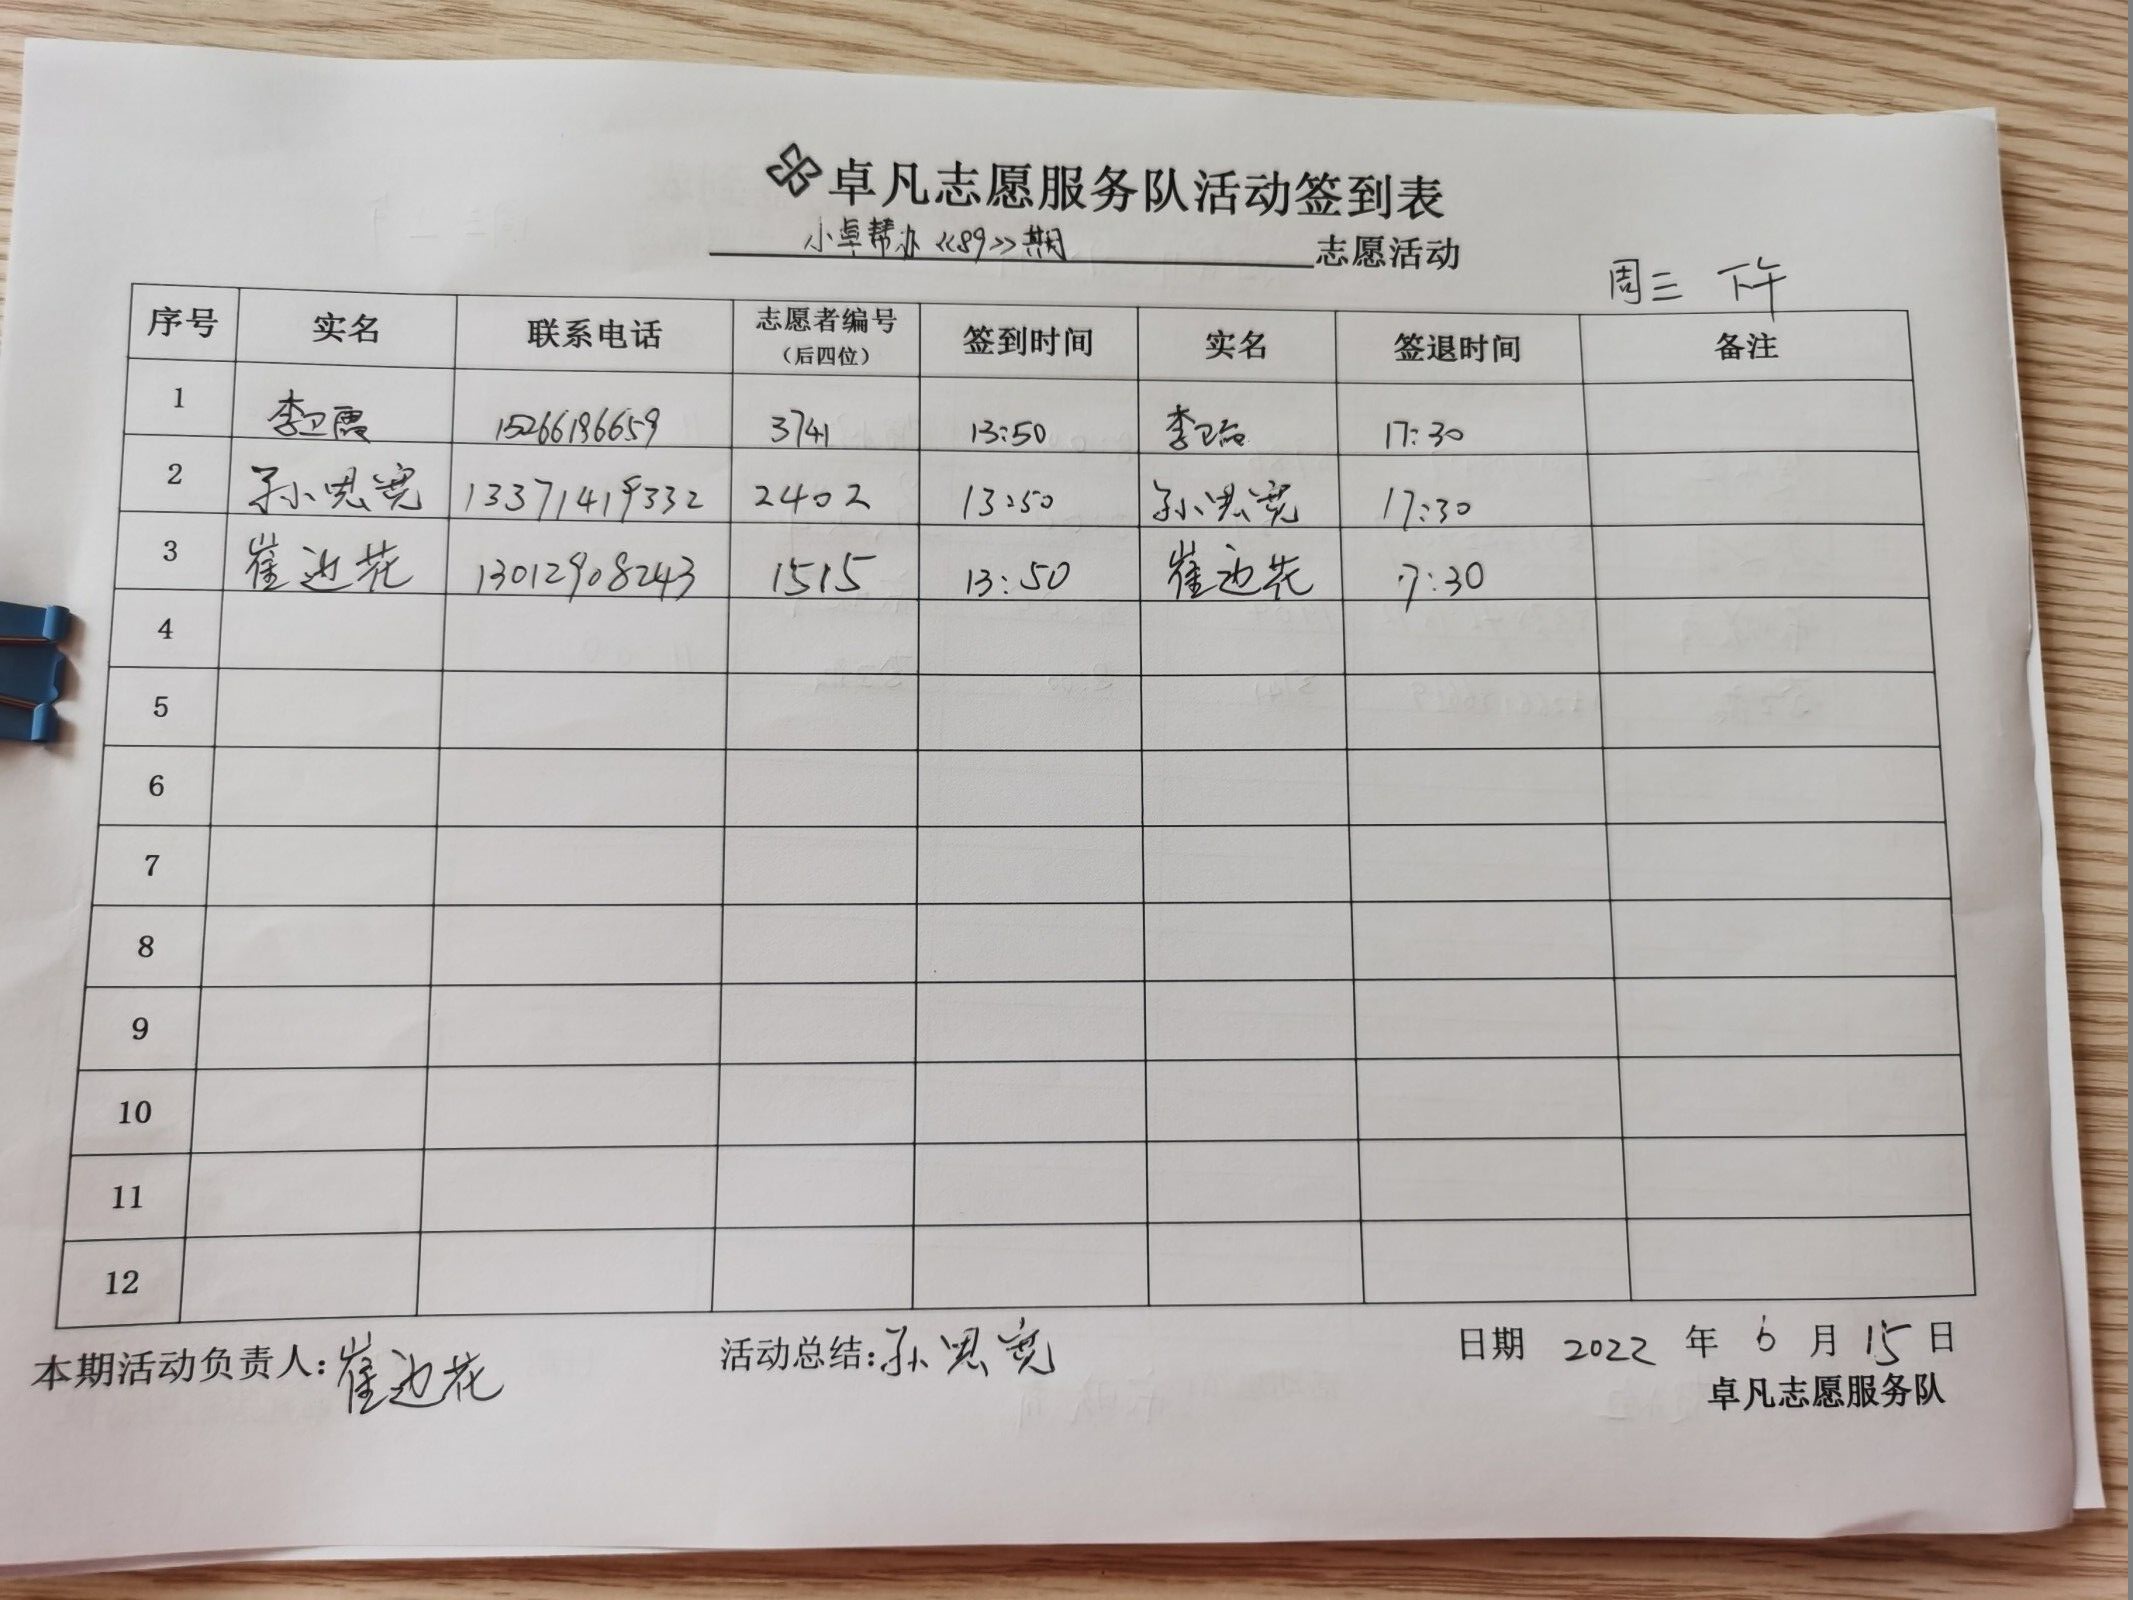 卓凡志愿服务队活动签到表
小卓帮办《89》期 志愿活动
周三 下午
序号 实名 联系电话 志愿者编号（后四位） 签到时间 实名 签退时间 备注
1 李卫霞 15266196659 3741 13:50 李卫霞 17:30
2 孙思宽 13371419332 2402 13:50 孙思宽 17:30
3 崔迎花 13012908243 1515 13:50 崔迎花 17:30
4
5
6
7
8
9
10
11
12
本期活动负责人：崔迎花 活动总结：孙思宽 日期 2022 年 6 月 15 日
卓凡志愿服务队